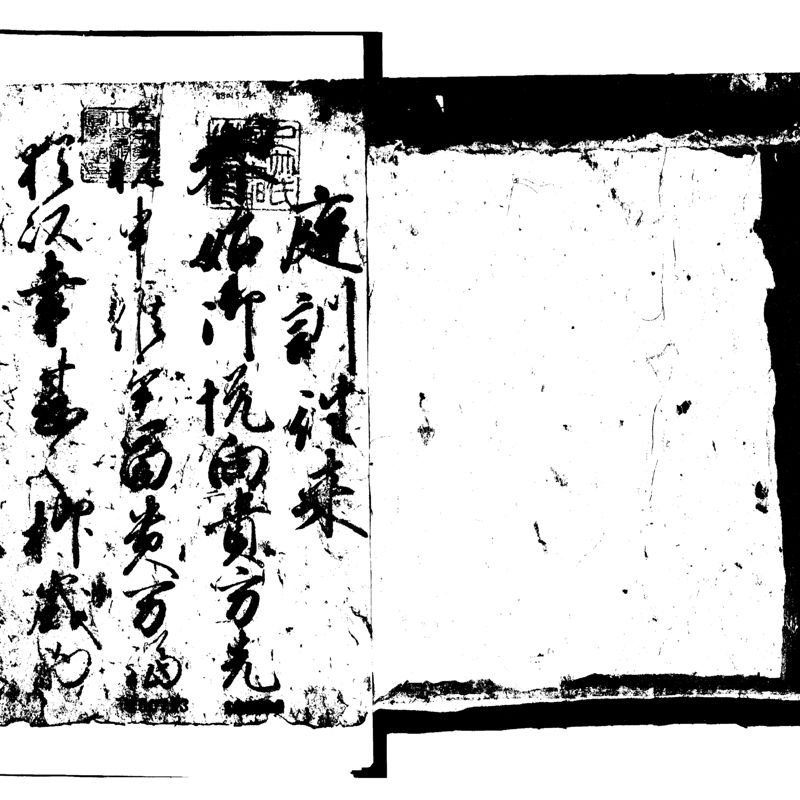 庭訓往来
春始御悦向貴方先
祝申候畢富貴万福
猶以幸甚々抑歳初